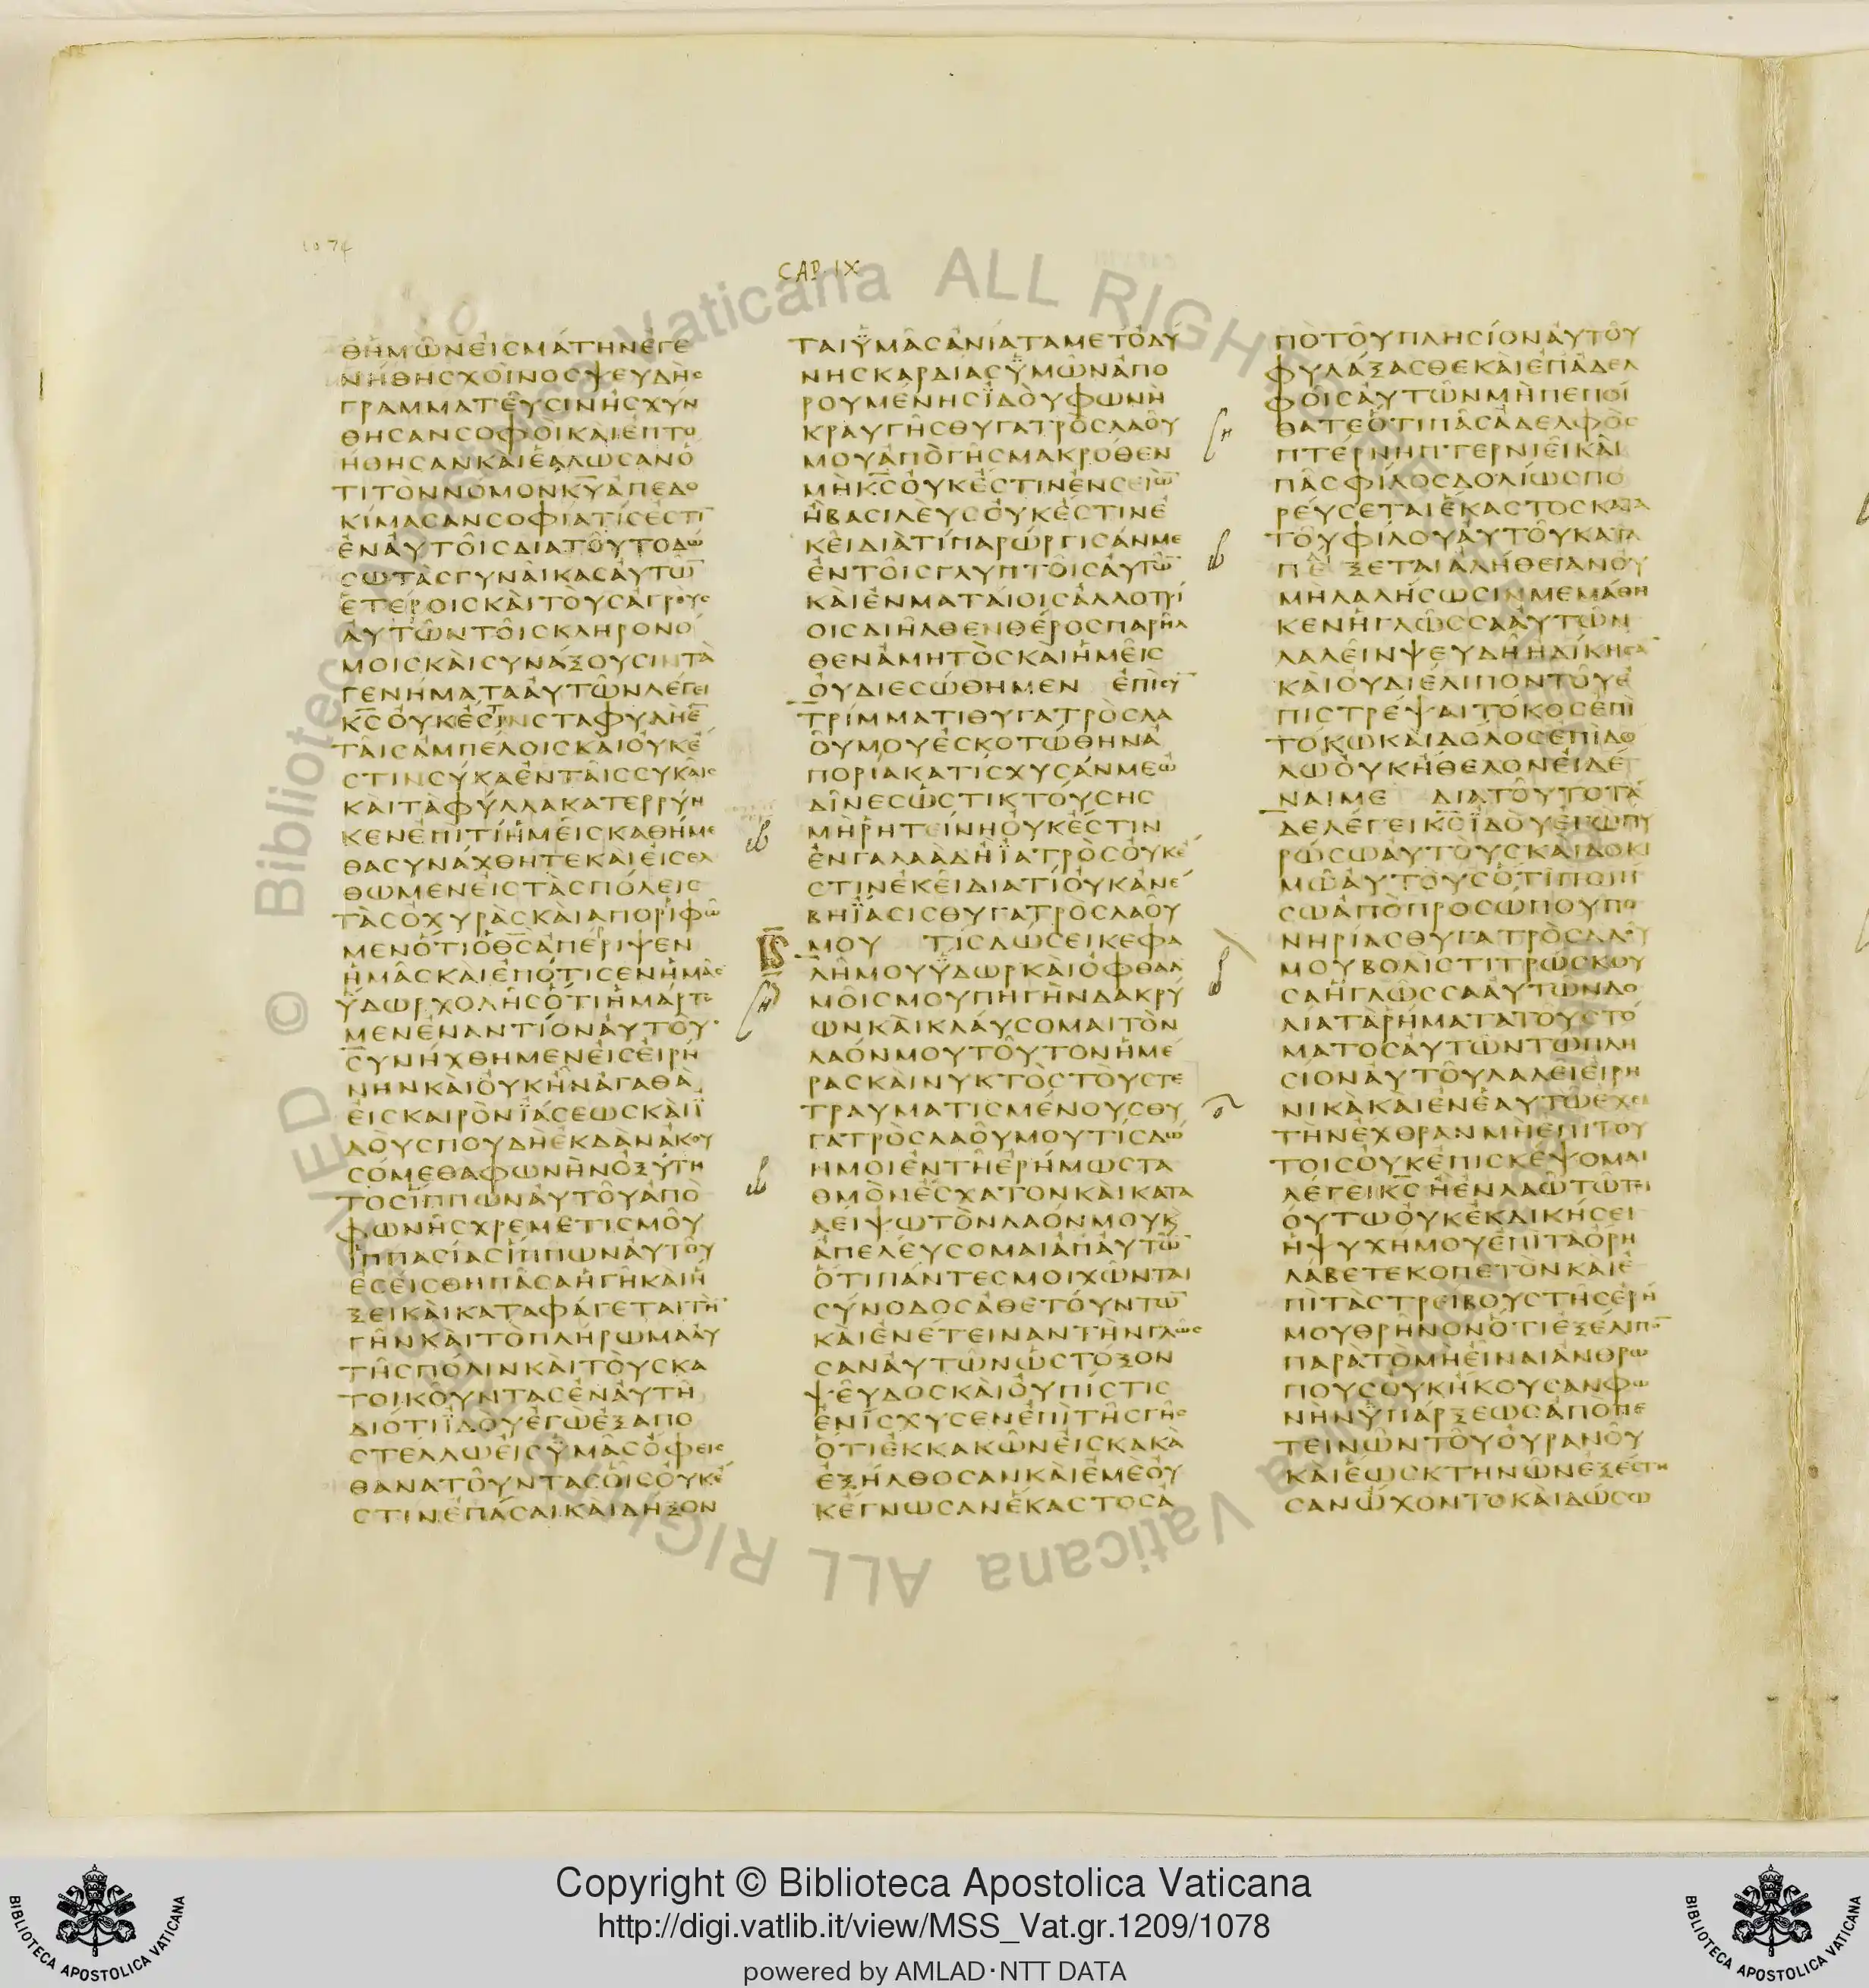 1074
CAP. IX
ΘΗΜΩΝΕΙСΜΑΤΗΝΕΓΕ
ΝΗΘΗСΧΟΙΝΟСΨΕΥΔΗС
ΓΡΑΜΜΑΤΕΥСΙΝΗСΧΥΝ
ΘΗСΑΝСΟΦΟΙΚΑΙΕΠΤΟ
ΗΘΗСΑΝΚΑΙΕΑΛΩСΑΝΟ
ΤΙΤΟΝΝΟΜΟΝΚΥΑΠΕΔΟ
ΚΙΜΑСΑΝСΟΦΙΑΤΙСΕСΤΙ
ΕΝΑΥΤΟΙСΔΙΑΤΟΥΤΟΔΩ
СΩΤΑСΓΥΝΑΙΚΑСΑΥΤΩ
ΕΤΕΡΟΙСΚΑΙΤΟΥСΑΓΡΟΥС
ΑΥΤΩΝΤΟΙСΚΛΗΡΟΝΟ
ΜΟΙСΚΑΙСΥΝΑΞΟΥСΙΝΤΑ
ΓΕΝΗΜΑΤΑΑΥΤΩΝΛΕΓΕΙ
ΚСΟΥΚΕСΤΙΝСΤΑΦΥΛΗΕ
ΤΑΙСΑΜΠΕΛΟΙСΚΑΙΟΥΚΕ
СΤΙΝСΥΚΑΕΝΤΑΙССΥΚΑΙС
ΚΑΙΤΑΦΥΛΛΑΚΑΤΕΡΡΥΗ
ΚΕΝΕΠΙΤΙΗΜΕΙСΚΑΘΗΜΕ
ΘΑСΥΝΑΧΘΗΤΕΚΑΙΕΙСΕΛ
ΘΩΜΕΝΕΙСΤΑСΠΟΛΕΙС
ΤΑСΟΧΥΡΑСΚΑΙΑΠΟΡΙΦΩ
ΜΕΝΟΤΙΟΘСΑΠΕΡΙΨΕΝ
ΗΜΑСΚΑΙΕΠΟΤΙСΕΝΗΜΑС
ΥΔΩΡΧΟΛΗСΟΤΙΗΜΑΡΤΟ
ΜΕΝΕΝΑΝΤΙΟΝΑΥΤΟΥ
СΥΝΗΧΘΗΜΕΝΕΙСΕΙΡΗ
ΝΗΝΚΑΙΟΥΚΗΝΑΓΑΘΑ
ΕΙСΚΑΙΡΟΝΪΑСΕΩСΚΑΙΪ
ΔΟΥСΠΟΥΔΗΕΚΔΑΝΑΚΟΥ
СΟΜΕΘΑΦΩΝΗΝΟΞΥΤΗ
ΤΟСΪΠΠΩΝΑΥΤΟΥΑΠΟ
ΦΩΝΗСΧΡΕΜΕΤΙСΜΟΥ
ΪΠΠΑСΙΑСΪΠΠΩΝΑΥΤΟΥ
ΕСΕΙСΘΗΠΑСΑΗΓΗΚΑΙΗ
ΞΕΙΚΑΙΚΑΤΑΦΑΓΕΤΑΙΤΗ
ΓΗΝΚΑΙΤΟΠΛΗΡΩΜΑΑΥ
ΤΗСΠΟΛΙΝΚΑΙΤΟΥСΚΑ
ΤΟΙΚΟΥΝΤΑСΕΝΑΥΤΗ
ΔΙΟΤΙΪΔΟΥΕΓΩΕΞΑΠΟ
СΤΕΛΛΩΕΙСΥΜΑСΟΦΕΙС
ΘΑΝΑΤΟΥΝΤΑСΟΙСΟΥΚΕ
СΤΙΝΕΠΑСΑΙΚΑΙΔΗΞΟΝ
ΤΑΙΫΜΑСΑΝΙΑΤΑΜΕΤΟΔΥ
ΝΗСΚΑΡΔΙΑСΫΜΩΝΑΠΟ
ΡΟΥΜΕΝΗСΪΔΟΥΦΩΝΗ
ΚΡΑΥΓΗСΘΥΓΑΤΡΟСΛΑΟΥ
ΜΟΥΑΠΟΓΗСΜΑΚΡΟΘΕΝ
ΜΗΚСΟΥΚΕСΤΙΝΕΝСΕΙΩ
ΗΒΑСΙΛΕΥСΟΥΚΕСΤΙΝΕ
ΚΕΙΔΙΑΤΙΠΑΡΩΡΓΙСΑΝΜΕ
ΕΝΤΟΙСΓΛΥΠΤΟΙСΑΥΤΩ
ΚΑΙΕΝΜΑΤΑΙΟΙСΑΛΛΟΤΡΙ
ΟΙСΔΙΗΛΘΕΝΘΕΡΟСΠΑΡΗΛ
ΘΕΝΑΜΗΤΟСΚΑΙΗΜΕΙС
ΟΥΔΙΕСΩΘΗΜΕΝ ΕΠΙСΥ
ΤΡΙΜΜΑΤΙΘΥΓΑΤΡΟСΛΑ
ΟΥΜΟΥΕСΚΟΤΩΘΗΝΑ
ΠΟΡΙΑΚΑΤΙСΧΥСΑΝΜΕΩ
ΔΙΝΕСΩСΤΙΚΤΟΥСΗС
ΜΗΡΗΤΕΙΝΗΟΥΚΕСΤΙΝ
ΕΝΓΑΛΑΑΔΗΪΑΤΡΟСΟΥΚΕ
СΤΙΝΕΚΕΙΔΙΑΤΙΟΥΚΑΝΕ
ΒΗΪΑСΙСΘΥΓΑΤΡΟСΛΑΟΥ
ΜΟΥ ΤΙСΔΩСΕΙΚΕΦΑ
ΛΗΜΟΥΫΔΩΡΚΑΙΟΦΘΑΛ
ΜΟΙСΜΟΥΠΗΓΗΝΔΑΚΡΥ
ΩΝΚΑΙΚΛΑΥСΟΜΑΙΤΟΝ
ΛΑΟΝΜΟΥΤΟΥΤΟΝΗΜΕ
ΡΑСΚΑΙΝΥΚΤΟСΤΟΥСΤΕ
ΤΡΑΥΜΑΤΙСΜΕΝΟΥСΘΥ
ΓΑΤΡΟСΛΑΟΥΜΟΥΤΙСΔΩ
ΗΜΟΙΕΝΤΗΕΡΗΜΩСΤΑ
ΘΜΟΝΕСΧΑΤΟΝΚΑΙΚΑΤΑ
ΛΕΙΨΩΤΟΝΛΑΟΝΜΟΥΚ
ΑΠΕΛΕΥСΟΜΑΙΑΠΑΥΤΩ
ΟΤΙΠΑΝΤΕСΜΟΙΧΩΝΤΑΙ
СΥΝΟΔΟСΑΘΕΤΟΥΝΤΩ
ΚΑΙΕΝΕΤΕΙΝΑΝΤΗΝΓΛΩС
СΑΝΑΥΤΩΝΩСΤΟΞΟΝ
ΨΕΥΔΟСΚΑΙΟΥΠΙСΤΙС
ΕΝΙСΧΥСΕΝΕΠΙΤΗСΓΗС
ΟΤΙΕΚΚΑΚΩΝΕΙСΚΑΚΑ
ΕΞΗΛΘΟСΑΝΚΑΙΕΜΕΟΥ
ΚΕΓΝΩСΑΝΕΚΑСΤΟСΑ
ΠΟΤΟΥΠΛΗСΙΟΝΑΥΤΟΥ
ΦΥΛΑΞΑСΘΕΚΑΙΕΠΑΔΕΛ
ΦΟΙСΑΥΤΩΝΜΗΠΕΠΟΙ
ΘΑΤΕΟΤΙΠΑСΑΔΕΛΦΟС
ΠΤΕΡΝΗΠΤΕΡΝΙΕΙΚΑΙ
ΠΑСΦΙΛΟСΔΟΛΙΩСΠΟ
ΡΕΥСΕΤΑΙΕΚΑСΤΟСΚΑΤΑ
ΤΟΥΦΙΛΟΥΑΥΤΟΥΚΑΤΑ
ΠΕ ΞΕΤΑΙΑΛΗΘΕΙΑΝΟΥ
ΜΗΛΑΛΗСΩСΙΝΜΕΜΑΘΗ
ΚΕΝΗΓΛΩССΑΑΥΤΩΝ
ΛΑΛΕΙΝΨΕΥΔΗΗΔΙΚΗСΑ
ΚΑΙΟΥΔΙΕΛΙΠΟΝΤΟΥΕ
ΠΙСΤΡΕΨΑΙΤΟΚΟСΕΠΙ
ΤΟΚΩΚΑΙΔΟΛΟСΕΠΙΔΟ
ΛΩΟΥΚΗΘΕΛΟΝΕΙΔΕ
ΝΑΙΜΕ ΔΙΑΤΟΥΤΟΤΑ
ΔΕΛΕΓΕΙΚСΪΔΟΥΕΓΩΠΥ
ΡΩСΩΑΥΤΟΥСΚΑΙΔΟΚΙ
ΜΩΑΥΤΟΥСΟΤΙΠΟΙΗ
СΩΑΠΟΠΡΟСΩΠΟΥΠΟ
ΝΗΡΙΑСΘΥΓΑΤΡΟСΛΑΟΥ
ΜΟΥΒΟΛΙСΤΙΤΡΩСΚΟΥ
СΑΗΓΛΩССΑΑΥΤΩΝΔΟ
ΛΙΑΤΑΡΗΜΑΤΑΤΟΥСΤΟ
ΜΑΤΟСΑΥΤΩΝΤΩΠΛΗ
СΙΟΝΑΥΤΟΥΛΑΛΕΙΕΙΡΗ
ΝΙΚΑΚΑΙΕΝΕΑΥΤΩΕΧΕΙ
ΤΗΝΕΧΘΡΑΝΜΗΕΠΙΤΟΥ
ΤΟΙСΟΥΚΕΠΙСΚΕΨΟΜΑΙ
ΛΕΓΕΙΚСΗΕΝΛΑΩΤΩΤΟΙ
ΟΥΤΩΟΥΚΕΚΔΙΚΗСΕΙ
ΗΨΥΧΗΜΟΥΕΠΙΤΑΟΡΗ
ΛΑΒΕΤΕΚΟΠΕΤΟΝΚΑΙΕ
ΠΙΤΑСΤΡΕΙΒΟΥСΤΗСΕΡΗ
ΜΟΥΘΡΗΝΟΝΟΤΙΕΞΕΛΙΠΟ
ΠΑΡΑΤΟΜΗΕΙΝΑΙΑΝΘΡΩ
ΠΟΥСΟΥΚΗΚΟΥСΑΝΦΩ
ΝΗΝΫΠΑΡΞΕΩСΑΠΟΠΕ
ΤΕΙΝΩΝΤΟΥΟΥΡΑΝΟΥ
ΚΑΙΕΩСΚΤΗΝΩΝΕΞΕСΤΗ
СΑΝΩΧΟΝΤΟΚΑΙΔΩСΩ
© Biblioteca Apostolica Vaticana ALL RIGHTS RESERVED
Copyright © Biblioteca Apostolica Vaticana
http://digi.vatlib.it/view/MSS_Vat.gr.1209/1078
powered by AMLAD·NTT DATA
BIBLIOTECA APOSTOLICA VATICANA
BIBLIOTECA APOSTOLICA VATICANA